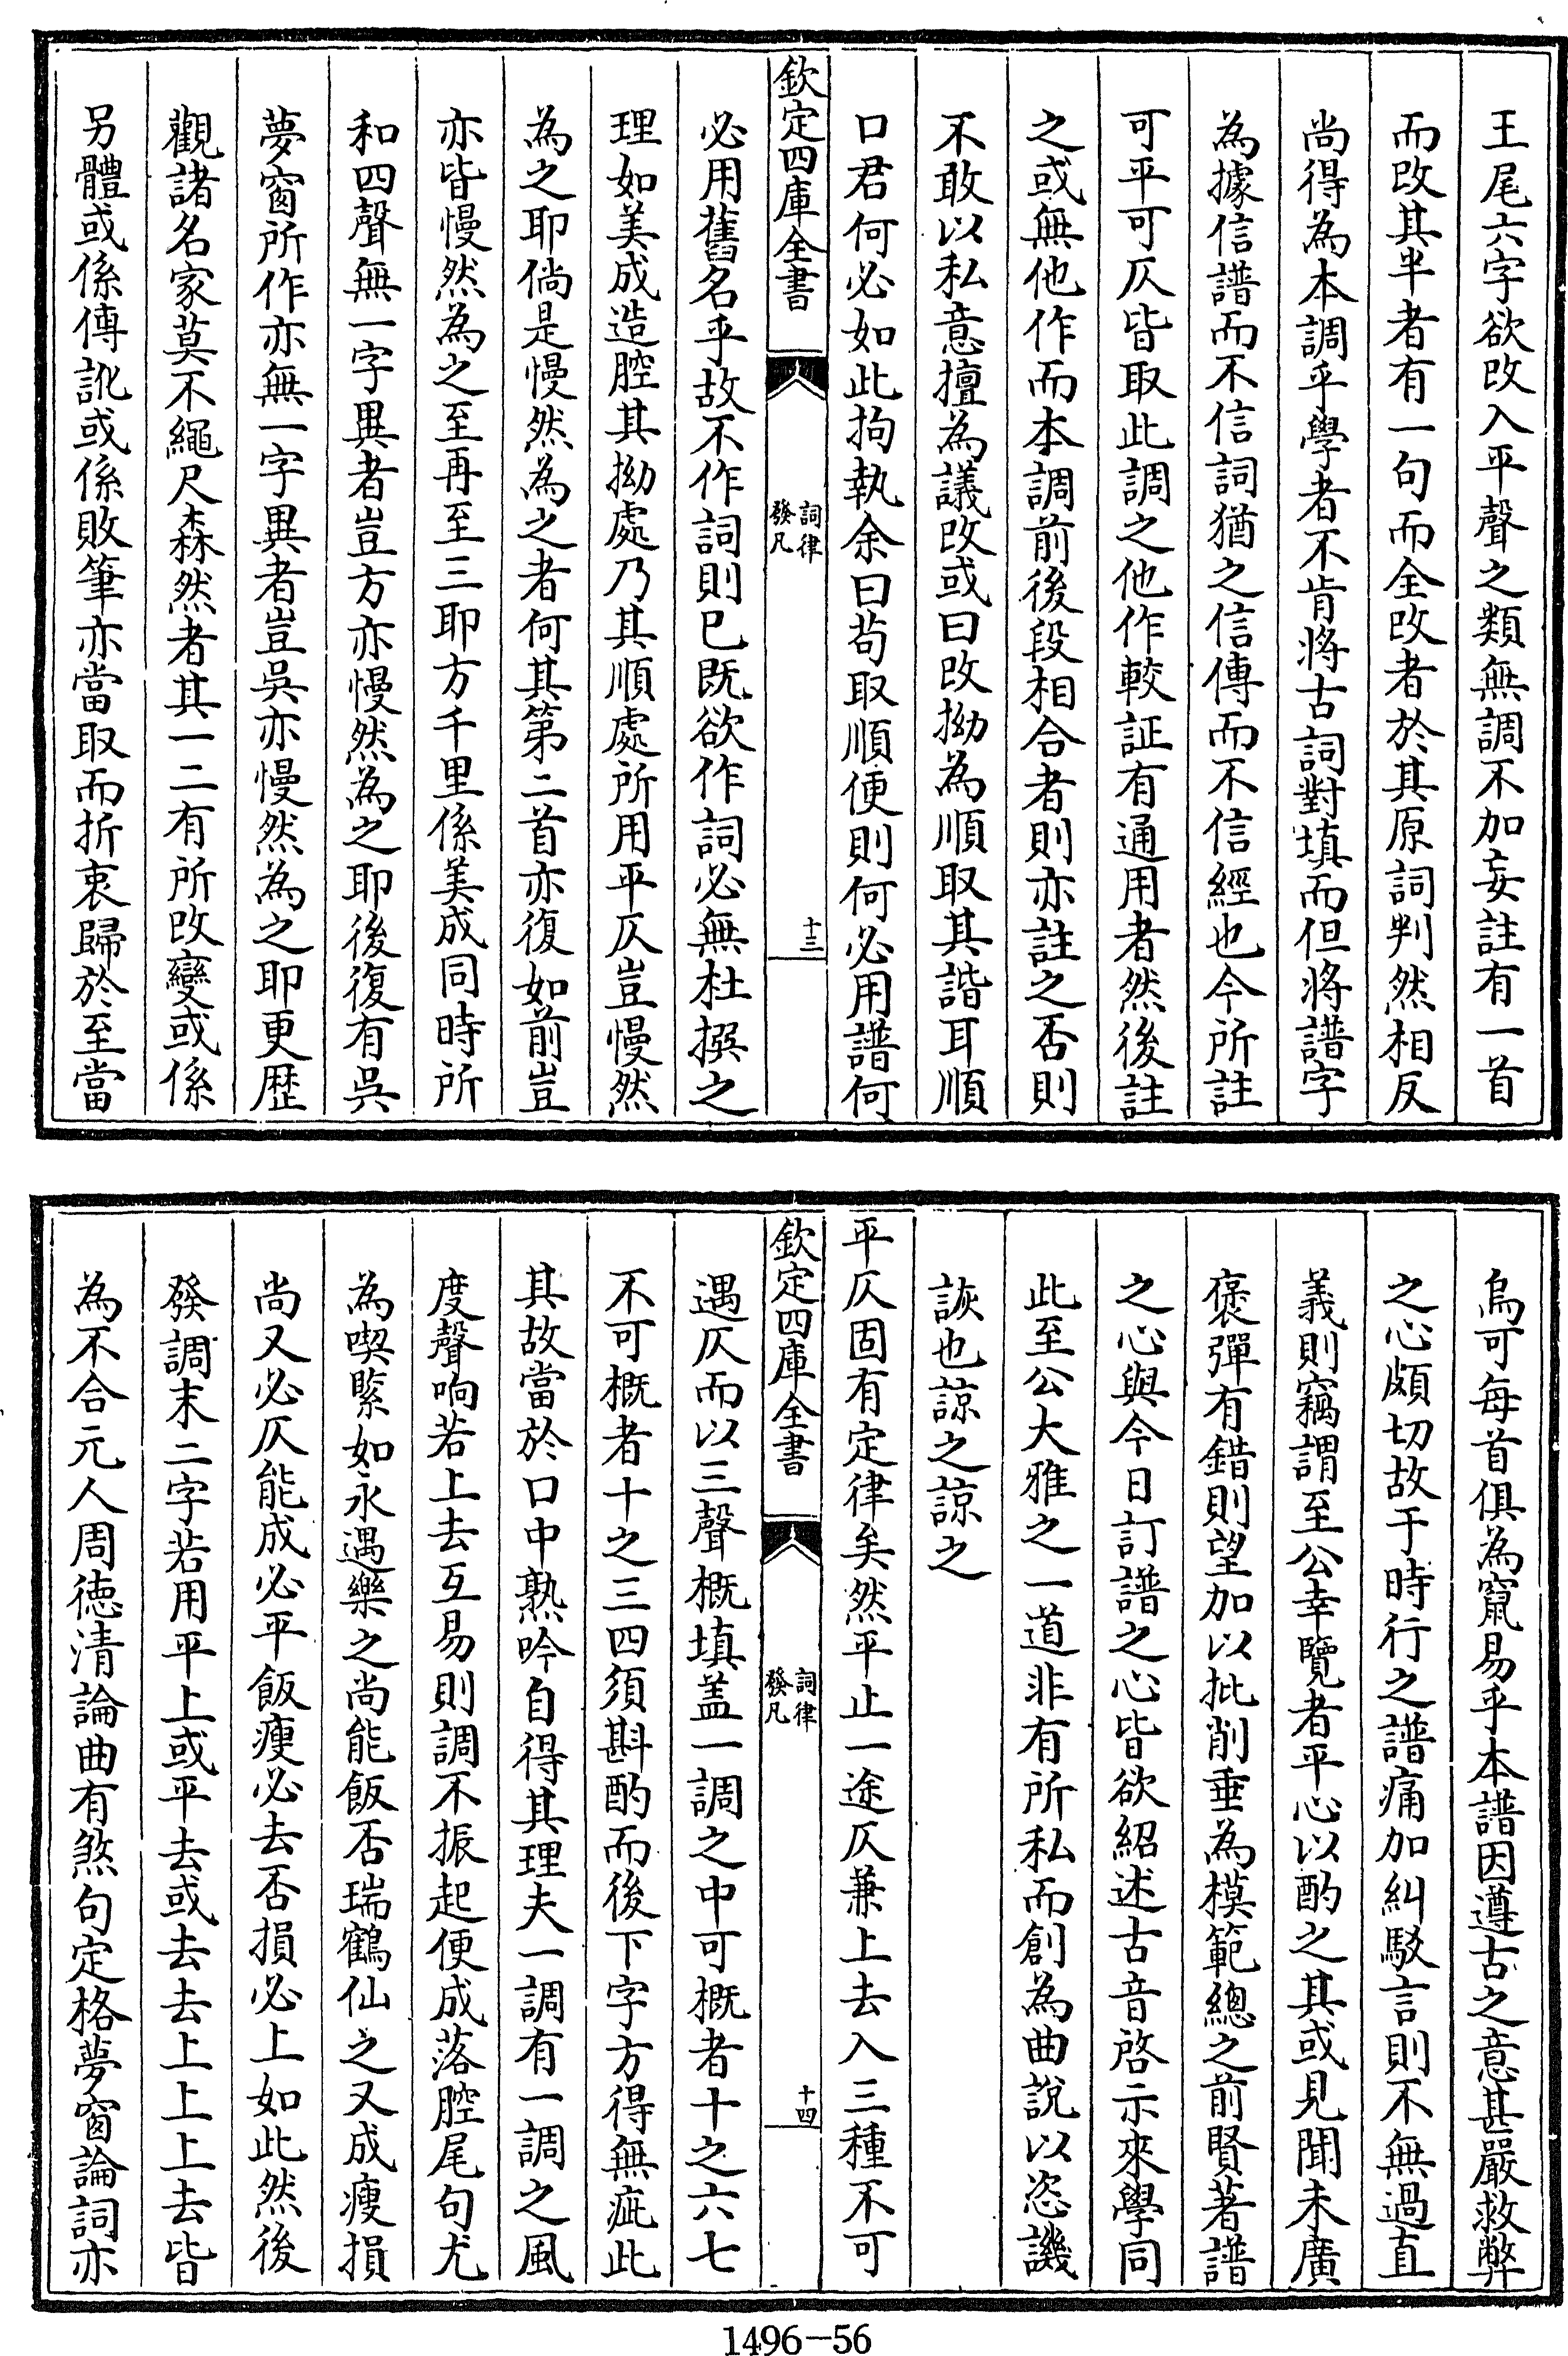 王尾六字欲改入平聲之類無調不加妄註有一首
而改其半者有一句而全改者於其原詞判然相反
尚得為本調乎學者不肯將古詞對填而但將譜字
為據信譜而不信詞猶之信傳而不信經也今所註
可平可仄皆取此調之他作較証有通用者然後註
之或無他作而本調前後段相合者則亦註之否則
不敢以私意擅為議改或曰改拗為順取其諧耳順
口君何必如此拘執余曰茍取順便則何必用譜何
欽定四庫全書
詞律
發凡
十三
必用舊名乎故不作詞則已既欲作詞必無杜撰之
理如美成造腔其拗處乃其順處所用平仄豈慢然
為之耶倘是慢然為之者何其第二首亦復如前豈
亦皆慢然為之至再至三耶方千里係美成同時所
和四聲無一字異者豈方亦慢然為之耶後復有吳
夢窗所作亦無一字異者豈吳亦慢然為之耶更歴
觀諸名家莫不繩尺森然者其一二有所改變或係
另體或係傳訛或係敗筆亦當取而折衷歸於至當
烏可每首俱為竄易乎本譜因遵古之意甚嚴救弊
之心頗切故于時行之譜痛加糾駁言則不無過直
義則竊謂至公幸覽者平心以酌之其或見聞未廣
褒彈有錯則望加以批削垂為模範總之前賢著譜
之心與今日訂譜之心皆欲紹述古音啓示來學同
此至公大雅之一道非有所私而創為曲說以恣譏
詼也諒之諒之
平仄固有定律矣然平止一途仄兼上去入三種不可
欽定四庫全書
詞律
發凡
十四
遇仄而以三聲概填盖一調之中可概者十之六七
不可概者十之三四須斟酌而後下字方得無疵此
其故當於口中熟吟自得其理夫一調有一調之風
度聲响若上去互易則調不振起便成落腔尾句尤
為喫緊如永遇樂之尚能飯否瑞鶴仙之又成瘦損
尚又必仄能成必平飯瘦必去否損必上如此然後
發調末二字若用平上或平去或去去上上上去皆
為不合元人周德清論曲有煞句定格夢窗論詞亦
1496-56